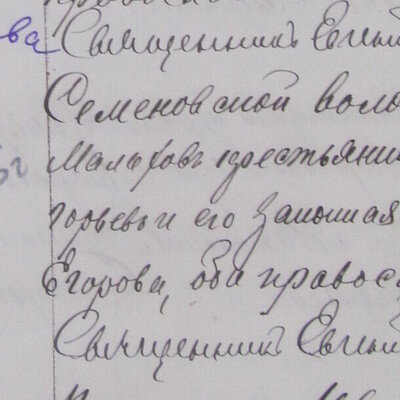 Священникъ Евгеній
Семеновской воло
крестьянин
горьевъ и его законная
Егорова, оба правосл
Священникъ Евгеній